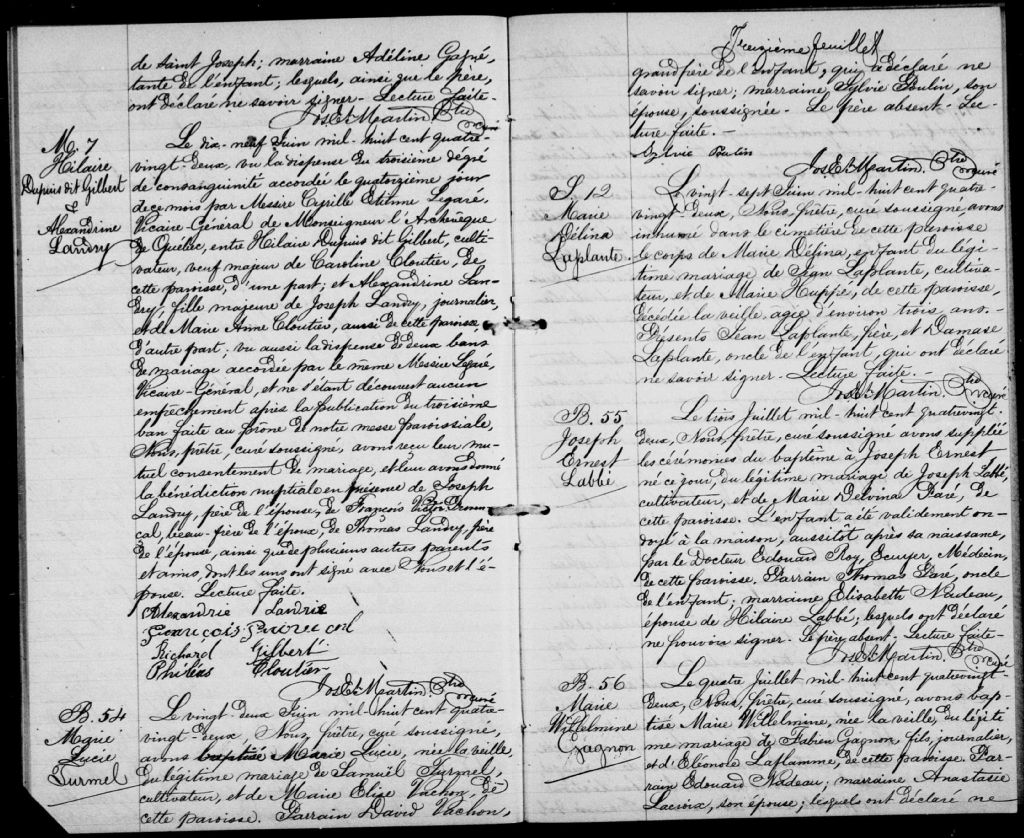 de Saint Joseph; marraine Adéline Gagné,
tante de l'enfant; lesquels, ainsi que le père,
ont déclaré ne savoir signer. Lecture faite.
Jos Et Martin Ptre curé
M. 7
Hilaire
Dupuis dit Gilbert
&
Alexandrine
Landry
Le dix-neuf Juin mil-huit cent quatre-
vingt-deux, vu la dispense du troisième dégré
de consanguinité accordée le quatorzième jour
de ce mois par Messire Cyrille Etienne Legaré,
Vicaire-Général de Monseigneur l'Archevêque
de Québec, entre Hilaire Dupuis dit Gilbert, culti-
vateur, veuf majeur de Caroline Cloutier, de
cette paroisse, d'une part, et Alexandrine Lan-
dry, fille majeure de Joseph Landry, journalier,
et de Marie Anne Cloutier, aussi de cette paroisse
d'autre part; vu aussi la dispense de deux bans
de mariage accordée par le même Messire Legaré,
Vicaire-Général, et ne s'étant découvert aucun
empêchement après la publication du troisième
ban faite au prône de notre messe paroissiale,
Nous, prêtre, curé soussigné, avons reçu leur mu-
tuel consentement de mariage, et leur avons donné
la bénédiction nuptiale en présence de Joseph
Landry, père de l'épouse, de François Victor Proven-
cal, beau-frère de l'époux, de Thomas Landry, frère
de l'épouse, ainsi que de plusieurs autres parents
et amis, dont les uns ont signé avec Nous et l'é-
pouse. Lecture faite.
Alexandrie Landrie
François Provencal
Richard Gilbert
Philéas Cloutier
Jos Et Martin. Ptre curé
B. 54
Marie
Lucie
Turmel
Le vingt-deux Juin mil-huit cent quatre-
vingt-deux, Nous, prêtre, curé soussigné,
avons baptisé Marie Lucie, née la veille
du légitime mariage de Samuël Turmel,
cultivateur, et de Marie Elise Vachon, de
cette paroisse. Parrain David Vachon,
Treizième feuillet
grandpère de l'enfant, qui a déclaré ne
savoir signer; marraine, Sylvie Poulin, son
épouse, soussignée. Le père absent. Lec-
ture faite.
Sylvie Poulin
Jos Et Martin. Ptre curé
S. 12
Marie
Délina
Laplante
Le vingt-sept Juin mil-huit cent quatre-
vingt-deux, Nous, prêtre, curé soussigné, avons
inhumé dans le cimetière de cette paroisse
le corps de Marie Délina, enfant du légi-
time mariage de Jean Laplante, cultiva-
teur, et de Marie Huppé, de cette paroisse,
décédée la veille, agée d'environ trois ans.
Présents Jean Laplante, père, et Damase
Laplante, oncle de l'enfant, qui ont déclaré
ne savoir signer. Lecture faite.
Jos Et Martin. Ptre curé
B. 55
Joseph
Ernest
Labbé
Le trois Juillet mil-huit cent quatrevingt-
deux, Nous, prêtre, curé soussigné avons suppléé
les cérémonies du baptême à Joseph Ernest
né ce jour, du légitime mariage de Joseph Labbé,
cultivateur, et de Marie Delvina Paré, de
cette paroisse. L'enfant a été validement on-
doyé à la maison, aussitôt après sa naissance,
par le Docteur Edouard Roy, Ecuyer, Médecin,
de cette paroisse. Parrain Thomas Paré, oncle
de l'enfant; marraine Elisabeth Nadeau,
épouse de Hilaire Labbé, lesquels ont déclaré
ne pouvoir signer. Le père absent. Lecture faite
Jos Et Martin. Ptre curé
B. 56
Marie
Willelmine
Gagnon
Le quatre Juillet mil-huit cent quatrevingt-
deux, Nous, prêtre, curé soussigné, avons bap-
tisé Marie Willelmine, née la veille, du légiti-
me mariage de Fabien Gagnon, fils, journalier,
et d'Eléonole Laflamme, de cette paroisse. Par-
rain Edouard Nadeau; marraine Anastasie
Lacroix, son épouse; lesquels ont déclaré ne